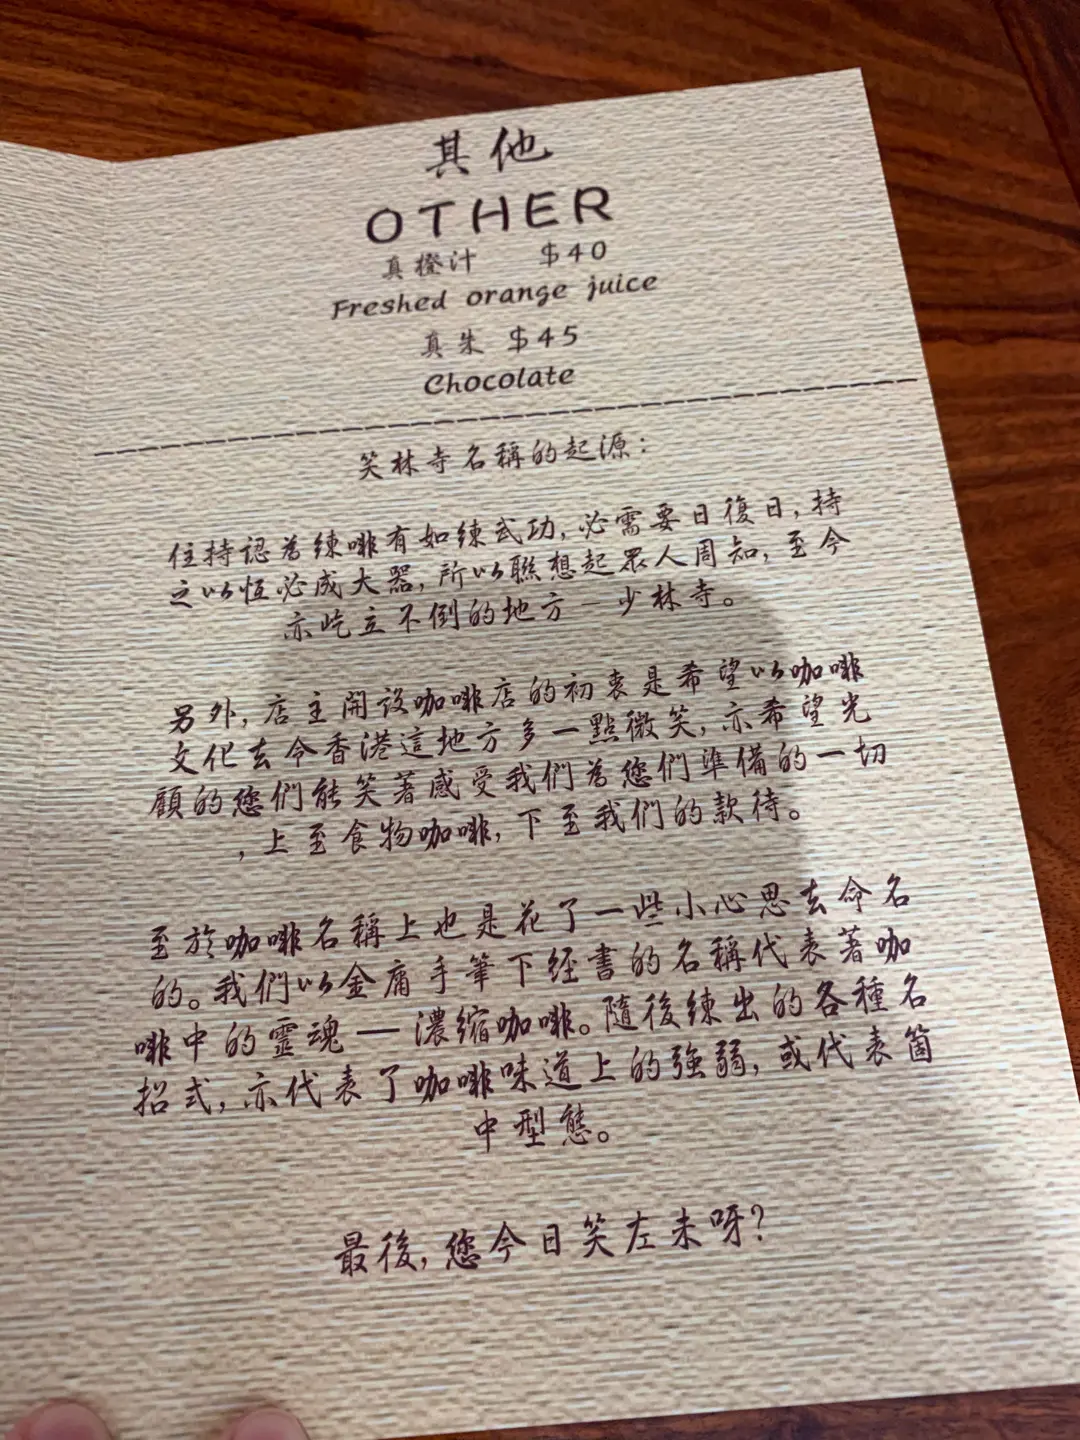 其他
OTHER
真橙汁 $40
Freshed orange juice
真朱 $45
Chocolate
笑林寺名稱的起源：
住持認為練啡有如練武功，必需要日復日，持
之以恆必成大器，所以聯想起眾人周知，至今
亦屹立不倒的地方－少林寺。
另外，店主開設咖啡店的初衷是希望以咖啡
文化去令香港這地方多一點微笑，亦希望光
顧的您們能笑著感受我們為您們準備的一切
，上至食物咖啡，下至我們的款待。
至於咖啡名稱上也是花了一些小心思去命名
的。我們以金庸手筆下經書的名稱代表著咖
啡中的靈魂—濃縮咖啡。隨後練出的各種名
招式，亦代表了咖啡味道上的強弱，或代表箇
中型態。
最後，您今日笑左未呀？